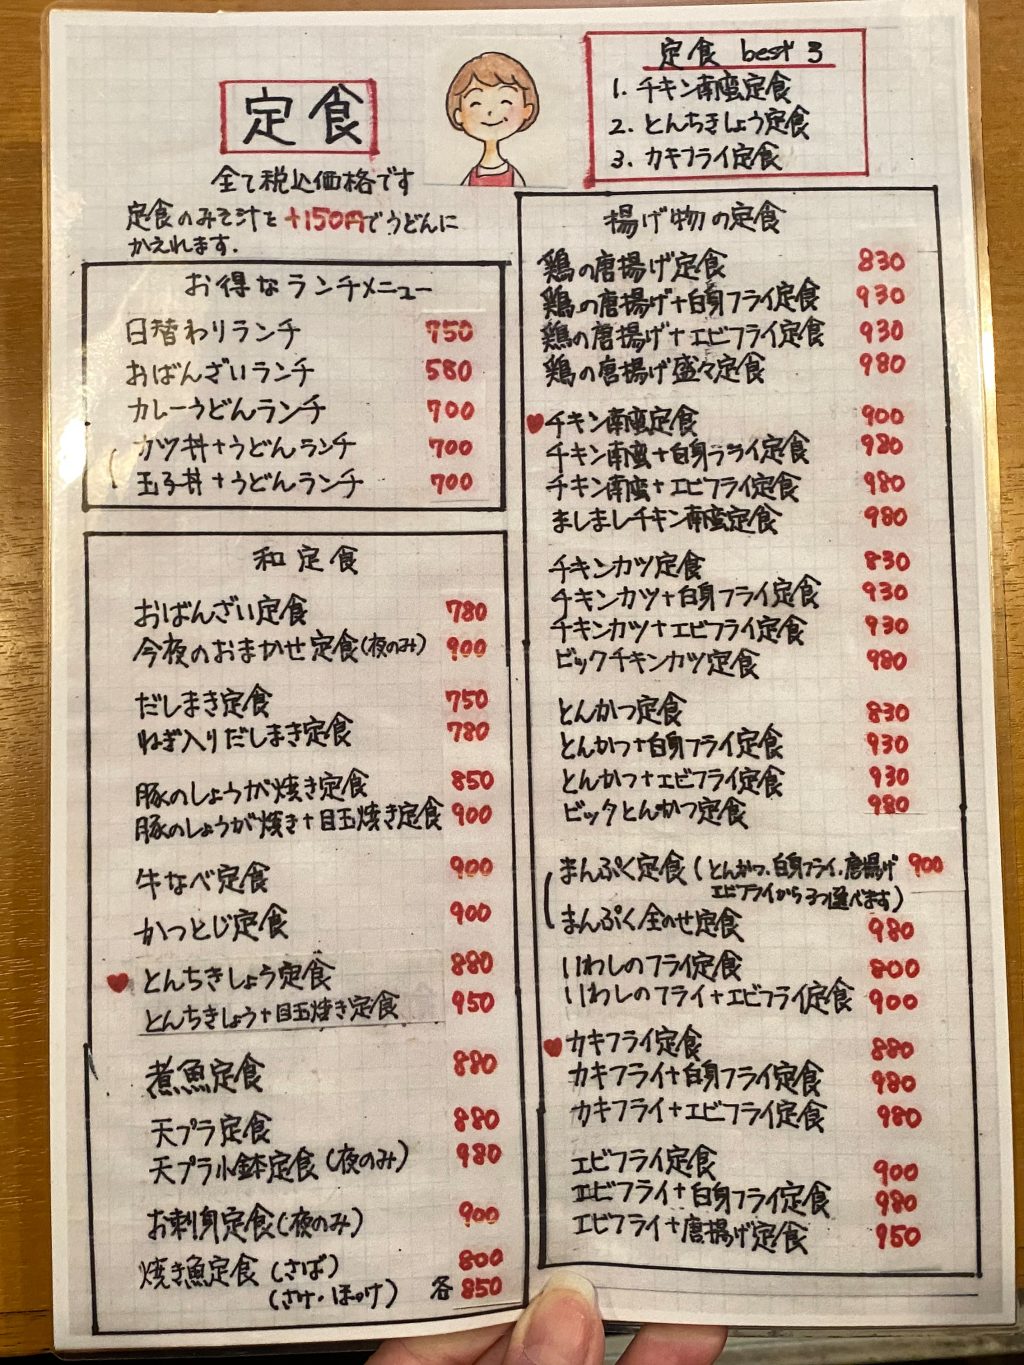 定食
全て税込価格です
定食のみそ汁を+150円でうどんに
かえれます.
定食 best 3
1. チキン南蛮定食
2. とんちきしょう定食
3. カキフライ定食
お得なランチメニュー
日替わりランチ 750
おばんざいランチ 580
カレーうどんランチ 700
カツ丼+うどんランチ 700
玉子丼+うどんランチ 700
和定食
おばんざい定食 780
今夜のおまかせ定食(夜のみ) 900
だしまき定食 750
ねぎ入りだしまき定食 780
豚のしょうが焼き定食 850
豚のしょうが焼き+目玉焼き定食 900
牛なべ定食 900
かつとじ定食 900
♥とんちきしょう定食 880
とんちきしょう+目玉焼き定食 950
煮魚定食 880
天プラ定食 880
天プラ小鉢定食(夜のみ) 980
お刺身定食(夜のみ) 900
焼き魚定食 (さば) 800
(さけ・ほっけ) 各850
揚げ物の定食
鶏の唐揚げ定食 830
鶏の唐揚げ+白身フライ定食 930
鶏の唐揚げ+エビフライ定食 930
鶏の唐揚げ盛々定食 980
♥チキン南蛮定食 900
チキン南蛮+白身フライ定食 980
チキン南蛮+エビフライ定食 980
ましましチキン南蛮定食 980
チキンカツ定食 830
チキンカツ+白身フライ定食 930
チキンカツ+エビフライ定食 930
ビックチキンカツ定食 980
とんかつ定食 830
とんかつ+白身フライ定食 930
とんかつ+エビフライ定食 930
ビックとんかつ定食 980
まんぷく定食 (とんかつ、白身フライ、唐揚げ 900
エビフライから3つ選べます)
まんぷく全のせ定食 980
いわしのフライ定食 800
いわしのフライ+エビフライ定食 900
♥カキフライ定食 880
カキフライ+白身フライ定食 980
カキフライ+エビフライ定食 980
エビフライ定食 900
エビフライ+白身フライ定食 980
エビフライ+唐揚げ定食 950